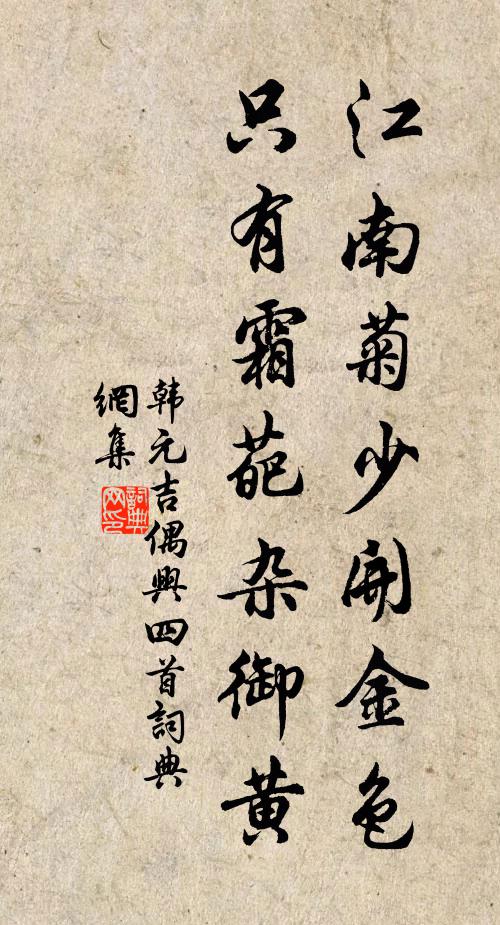 江南菊少開金色
只有霜葩杂御黄
韩元吉偶興四首詞典
網集
詞典
网印